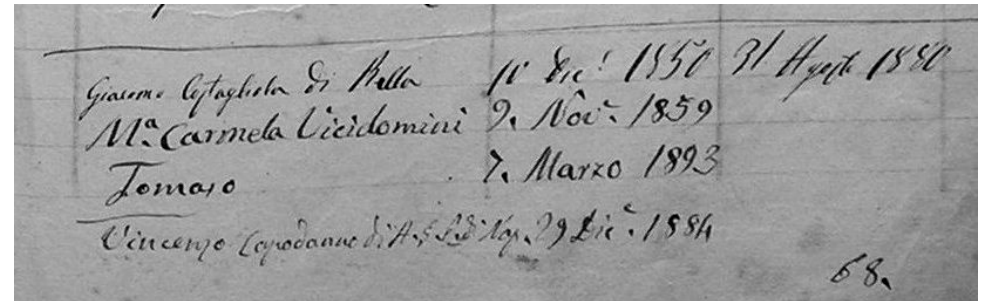 Giacomo Costagliola di Biella 10 Dic.e 1850 31 Agosto 1880
M.a Carmela Vicidomini 9. Nov.e 1859
Tomaso 7. Marzo 1893
Vincenzo Capodanno di A. di Nap. 29 Dic.e 1884
68.